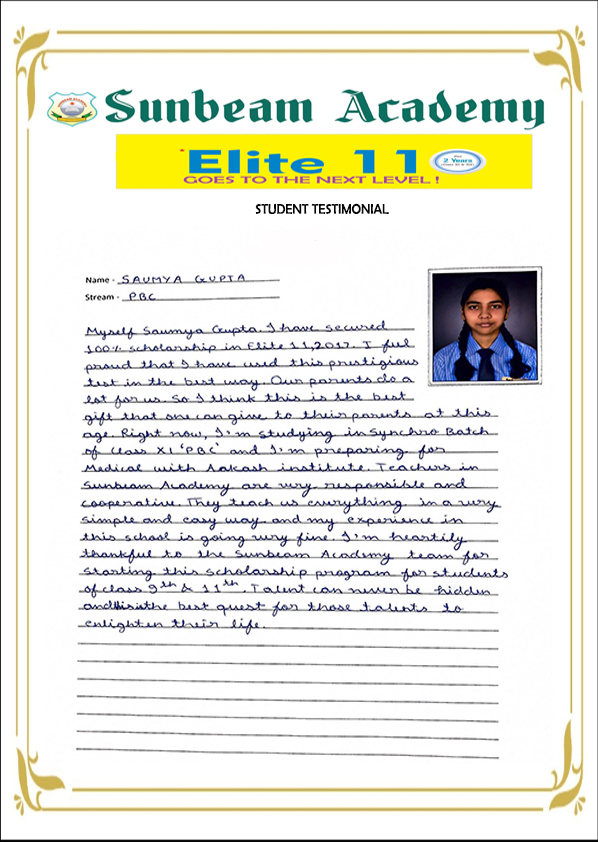 Sunbeam Academy
Elite 11
2 Years
GOES TO THE NEXT LEVEL !
STUDENT TESTIMONIAL
Name - SAUMYA GUPTA
Stream - PBC
Myself Saumya Gupta. I have secured
100% scholarship in Elite 11, 2017. I feel
proud that I have used this prestigious
test in the best way. Our parents do a
lot for us. So I think this is the best
gift that one can give to their parents at this
age. Right now, I'm studying in Synchro Batch
of Class XI 'PBC' and I'm preparing for
Medical with Aakash institute. Teachers in
Sunbeam Academy are very responsible and
cooperative. They teach us everything in a very
simple and easy way and my experience in
this school is going very fine. I'm heartily
thankful to the Sunbeam Academy team for
starting this scholarship program for students
of class 9th & 11th. Talent can never be hidden
and this is the best quest for those talents to
enlighten their life.